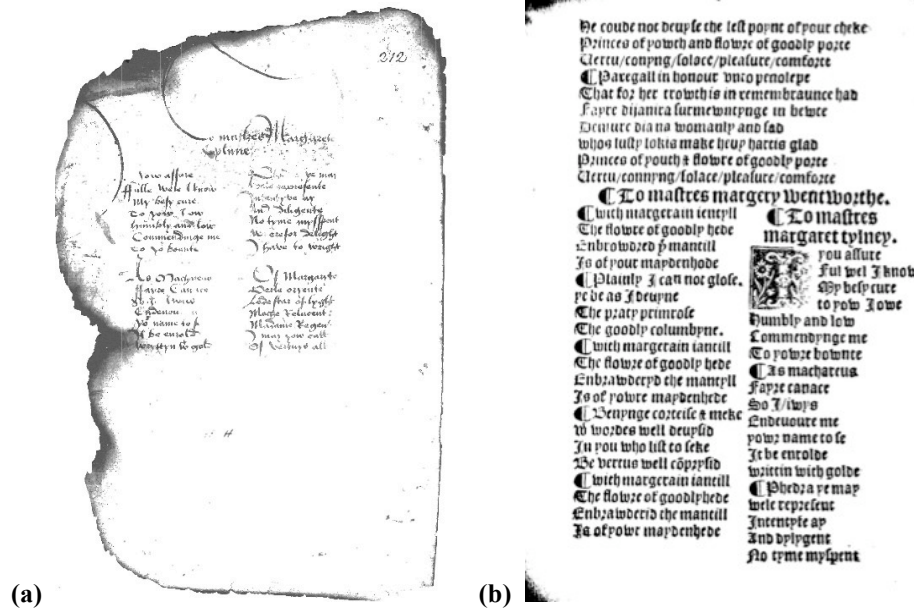 212
mastres Margaret
yow assure
ffulle Well I know
My besy cure
To yow I ow
humbly and low
Commendinge me
To yo bounte
As
ffayre
So I
Endevou
Yo name to s
It be enrold
Wryttyn gold
ye may
represente
Intentyve ay
And diligente
No tyme mysspent
Werefor delight
I have to wright
Of Margaryte
Perle oryente
Lode star of lyght
Moche Relucent
Madame Regent
I may yow call
Of vertues all
(a)
He coude not deuyse the lest poynt of your cheke
Princes of yowth and flowre of goodly porte
Uertu/conyng/solace/pleasure/comforte
¶ Paregall in honour vnto penolepe
That for her trowth is in remembraunce had
Fayre dijanira surmewntynge in bewte
Demure diana womanly and sad
whos lusty lokis make heuy hartis glad
Princes of youth & flowre of goodly porte
Uertu/connyng/solace/pleasure/comforte
¶ To mastres margery wentworthe.
¶ with margerain ientyll
The flowre of goodly hede
Enbrowdred þe mantill
Is of your maydenhode
¶ Plainly I can not glose.
ye be as I deuyne
The praty primrose
The goodly columbyne.
¶ with margerain iantill
The flowre of goodly hede
Enbrawderyd the mantyll
Is of yowre maydenhede
¶ Benynge corteise & meke
wt wordes well deuysid
In you who list to seke
Be vertus well cōprysid
¶ with margerain iantill
The flowre of goodlyhede
Enbrawderid the mantill
Is of yowr maydenhede
¶ To mastres
margaret tylney.
I you assure
Ful wel I know
My besy cure
to yow I owe
Humbly and low
Commendynge me
To yowre bownte
¶ As machareus
Fayre canace
So I/iwys
Endeuoure me
yowr name to se
It be enrolde
writtin with golde
¶ Phedra ye may
wele represent
Intentyfe ay
And dylygent
No tyme myspent
(b)